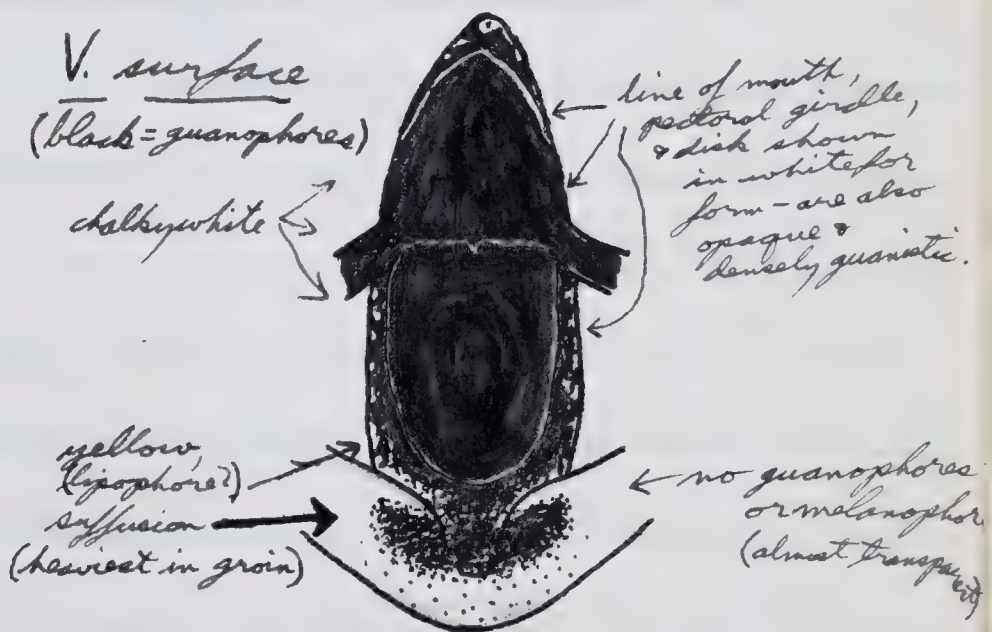 V. surface
(black = guanophores)
chalky white
line of mouth,
pectoral girdle,
& disk shown
in white for
form - are also
opaque &
densely guanistic.
yellow,
(lipophore?)
suffusion
(heaviest in groin)
no guanophores
or melanophor
(almost transparent)